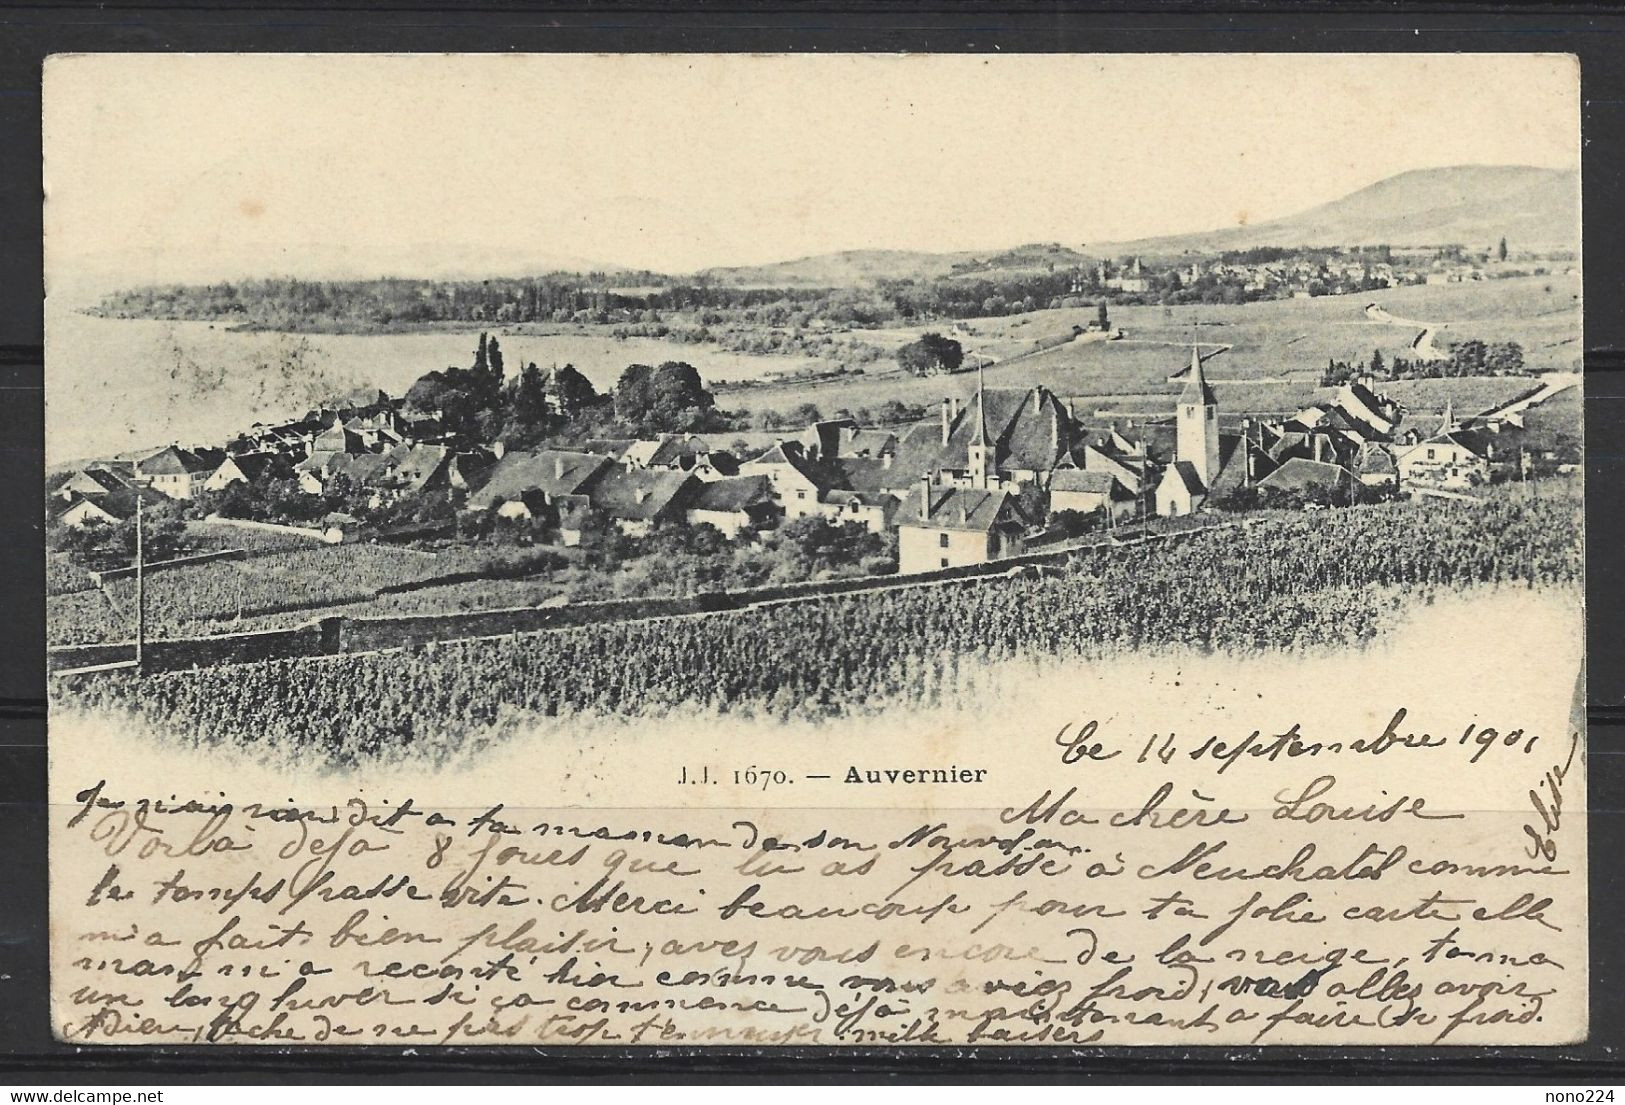 J.J. 1670. — Auvernier
Ce 14 septembre 1901
Ma chère Louise
Je n'ai rien dit a ta maman de son
Voilà déjà 8 jours que tu as passé à Neuchatel comme
le temps passe vite. Merci beaucoup pour ta jolie carte elle
m'a fait bien plaisir, avez vous encore de la neige, ta ma
man m'a raconté hier comme vous aviez froid, vous allez avoir
un long hiver si ça commence déjà maintenant a faire si froid.
Adieu, tâche de ne pas trop t'ennuyer. mille baisers
Elise
nono224
© delcampe.net